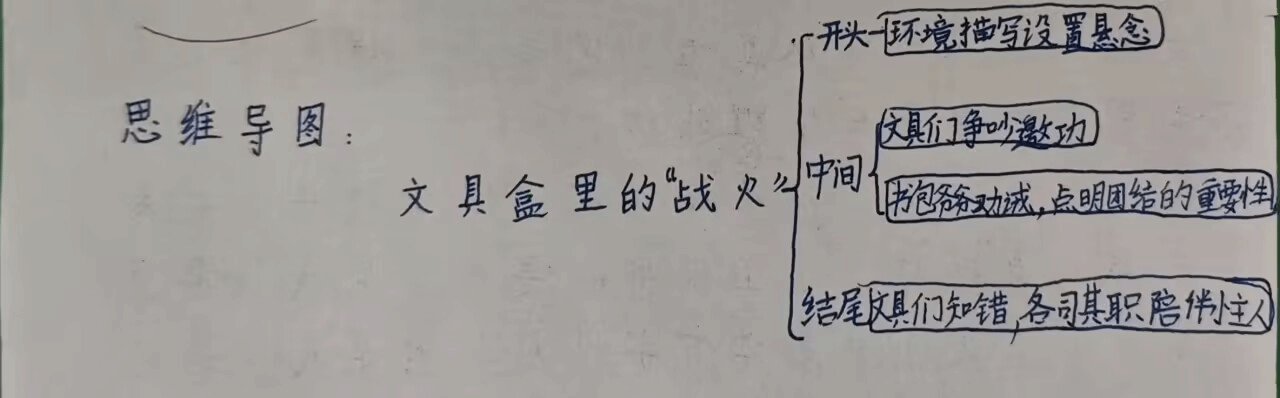 思维导图：
文具盒里的“战火”
开头
环境描写设置悬念
中间
文具们争吵邀功
书包爷爷劝诫，点明团结的重要性
结尾
文具们知错，各司其职陪伴小主人